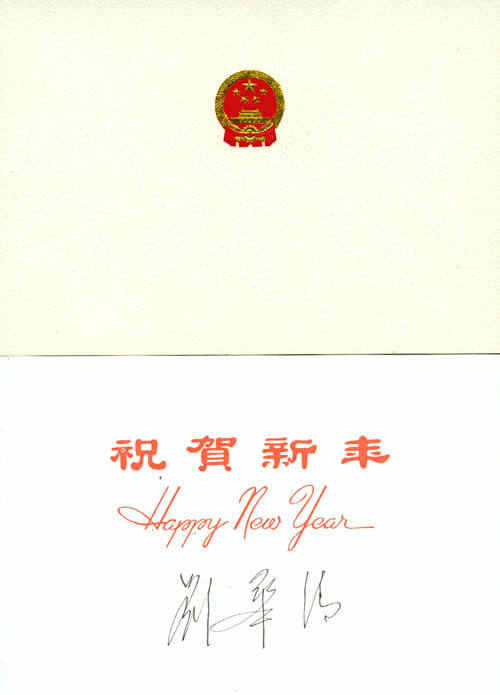 祝賀新年
Happy New Year
刘华清